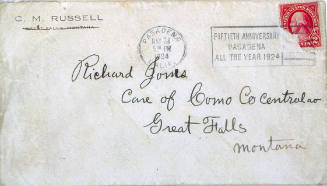 C. M. RUSSELL
GREAT FALLS, MONTANA
PASADENA
1924
CALIF.
FIFTIETH ANNIVERSARY
PASADENA
ALL THE YEAR 1924
Richard Jones
Care of Como Co
Great Falls
Montana